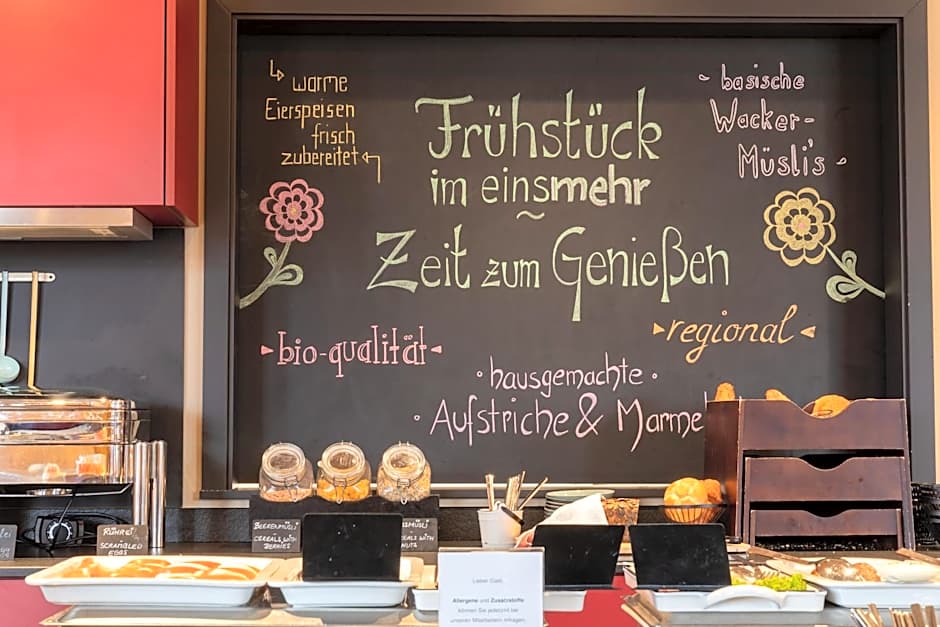 warme
Eierspeisen
frisch
zubereitet
Frühstück
im einsmehr
~
Zeit zum Genießen
basische
Wacker-
Müsli's
bio-qualität
regional
hausgemachte
Aufstriche & Marme
BEERENMÜSLI
CEREALS WITH
BERRIES
RÜHREI
SCRAMBLED
EGGS
Lieber Gast,
Allergene und Zusatzstoffe
können Sie jederzeit bei
unseren Mitarbeitern erfragen.